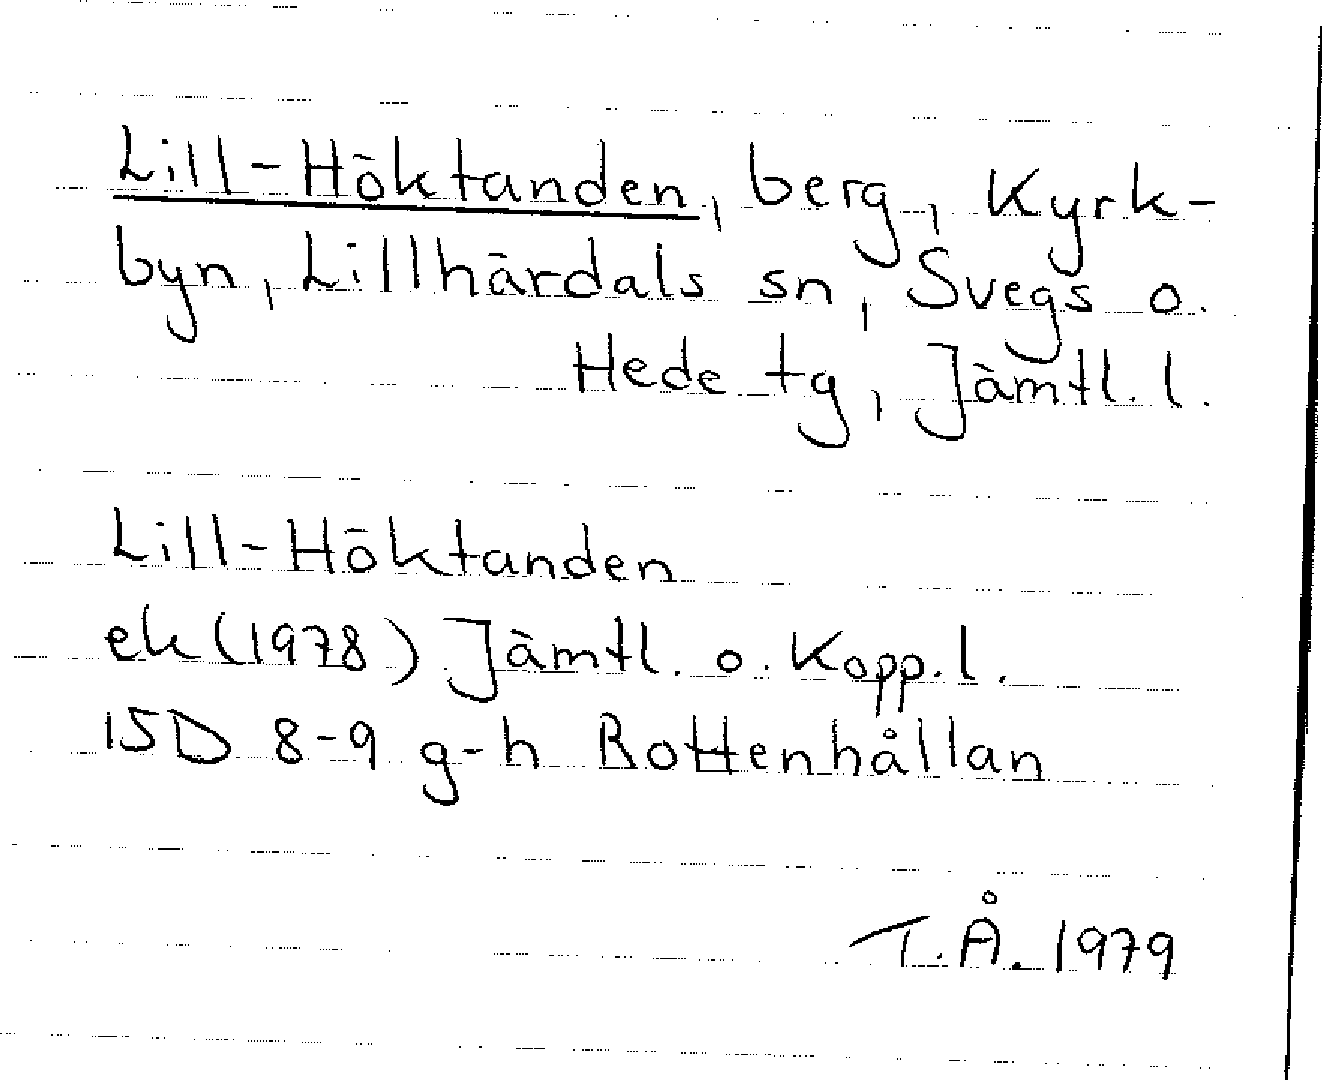 Lill-Höktanden, berg, Kyrk-
byn, Lillhärdals sn, Svegs o.
Hede tg, Jämtl. l.
Lill-Höktanden
ek (1978) Jämtl. o. Kopp. l.
15D 8-9 g-h Rottenhållan
T.Å. 1979